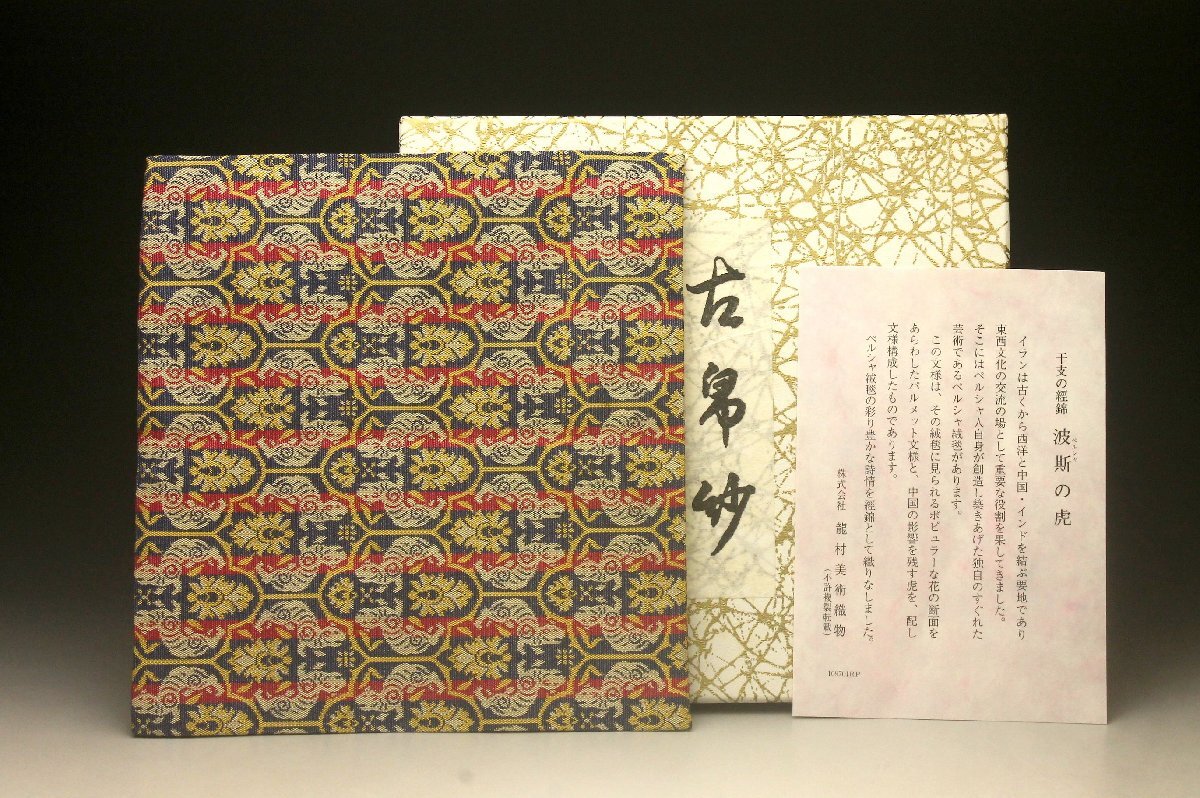 古帛紗
干支の經錦 波斯の虎
ペルシャ
イランは古くから西洋と中国・インドを結ぶ要地であり
東西文化の交流の場として重要な役割を果してきました。
そこにはペルシャ人自身が創造し築きあげた独自のすぐれた
芸術であるペルシャ絨毯があります。
この文様は、その絨毯に見られるポピュラーな花の断面を
あらわしたパルメット文様と、中国の影響を残す虎を、配し
文様構成したものであります。
ペルシャ絨毯の彩り豊かな詩情を經錦として織りなしました。
株式会社 龍村美術織物
(不許複製転載)